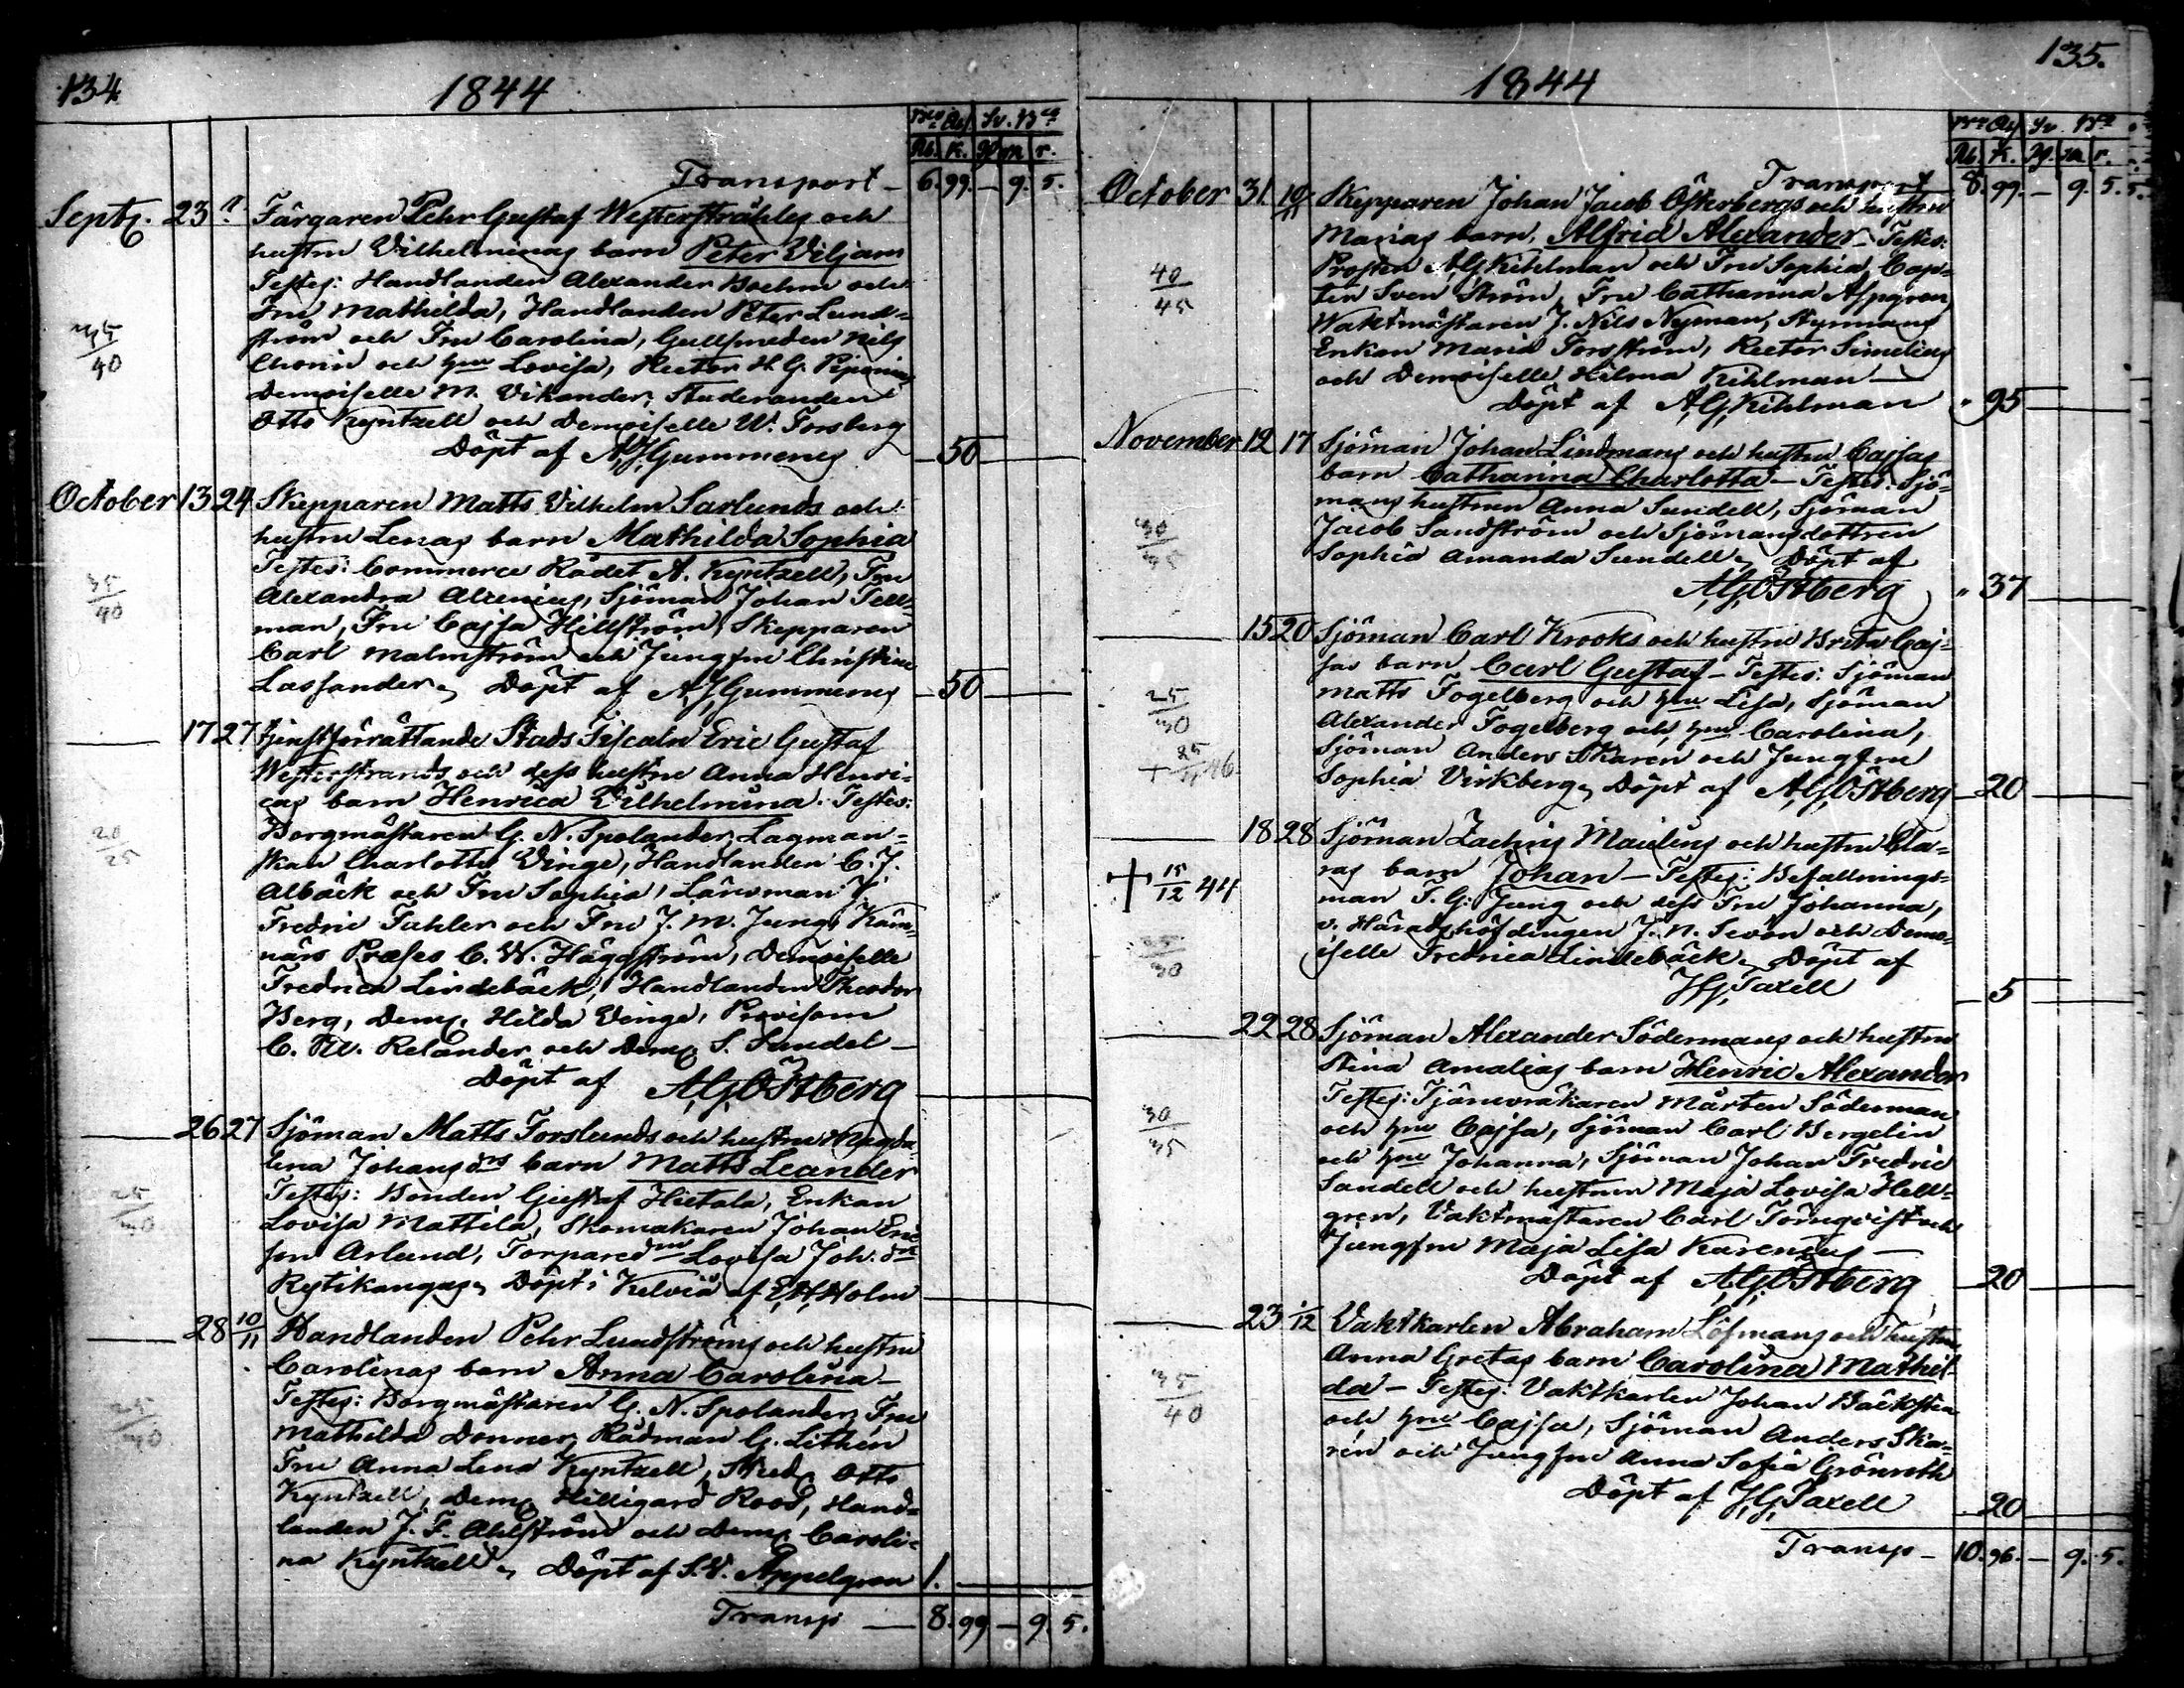 134
1844
Bco Ass. Sv. Bco
Rb. K. R m r.
Transport - 6. 99. - 9. 5.
Septb. 23 Färgaren Pehr Gustaf Westerstråhles och
hustru Vilhelminas barn Peter Viljam
Testes: Handlanden Alexander Boehm och
Fru Mathilda, Handlanden Peter Lund=
35/40
ström och Fru Carolina, Gullsmeden Nils
Chorin och hru Lovisa, Rector H. G.
Demoiselle M. Vikander, Studeranden
Otto Kyntzell och Demoiselle W. Forsberg
Döpt af A. J. Gummerus - 50
October 13 24 Skepparen Matts Vilhelm Sarlunds och
hustru Lenas barn Mathilda Sophia
Testes: Commerce Rådet A. Kyntzell, Fru
35/40
Alexandra Alcenius, Sjöman Johan Tell=
man, Fru Cajsa Hillström, Skepparen
Carl Malmström och Jungfru Christina
Lassander, Döpt af A. J. Gummerus - 50
17 27 Tjenstförrättande Stads Fiscaln Eric Gustaf
Westerstrands och dess hustru Anna Henri=
cas barn Henrica Vilhelmina. Testes:
Borgmästaren G. N. Spolander, Lagman=
20/25
skan Charlotta Vinge, Handlanden C. J.
Albäck och Fru Sophia, Länsman J.
Fredric Tahler och Fru J. M. Jung, Käm=
närs Præses C. W. Häggström, Demoiselle
Fredrica Lindebäck, Handlanden Theodor
Berg, Dem. Hilda Vinge, Provisorn
C. W. Relander och Dem. S. Sundel -
Döpt af A. G. Östberg
26 27 Sjöman Matts Forslunds och hustru Magda=
lena Johansdrs barn Matts Leander
25/30
Testes: Bonden Gustaf Hietala, Enkan
Lovisa Mattila, Skomakaren Johan Eric
son Arlund, Torparedrn Lovisa Joh. dr
Rytikangas, Döpt i Kelviå af E. H. Holm
28 10/11 Handlanden Pehr Lundströms och hustru
Carolinas barn Anna Carolina -
Testes: Borgmästaren G. N. Spolander, Fru
25/30
Mathilda Donner, Rådman G. Lithén
Fru Anna Lena Kyntzell, Stud. Otto
Kyntzell, Dem. Hilligard Roos, Hand=
landen J. F. Ahlström och Dem. Caroli=
na Kyntzell, Döpt af S. V. Appelgren 1. -
Transp - 8. 99 - 9. 5.
135.
1844
Bco Ass Sv. Bco
Rb. K. R. m. r.
Transport 8. 99. - 9. 5.
October 31 10/11 Skepparen Johan Jacob Österbergs och hustru
Marias barn, Alfrid Alexander - Testes:
40/45
Prosten A. G. Kihlman och Fru Sophia, Cap=
ten Sven Ström, Fru Catharina Aspgren,
Waktmästaren J. Nils Nyman, Styrmans
Enkan Maria Forsström, Rector Simelius
och Demoiselle Hilma Kihlman -
Döpt af A. G. Kihlman " 95
November 12 17 Sjöman Johan Lindmans och hustru Cajsas
barn Catharina Charlotta - Testes: Sjö=
mans hustrun Anna Sundell, Sjöman
Jacob Sandström och Sjömansdottren
Sophia Amanda Sundell, Döpt af
A. G. Östberg " 37
15 20 Sjöman Carl Krooks och hustru Brita Caj=
sas barn Carl Gustaf - Testes: Sjöman
25/30
Matts Fogelberg och hru Lisa, Sjöman
Alexander Fogelberg och hru Carolina,
Sjöman Anders Skaren och Jungfru
Sophia Virkberg, Döpt af A. G. Östberg - 20
18 28 Sjöman Zachris Mailens och hustru Cla=
ras barn Johan - Testes: Befallnings=
+ 15/12 44
man F. G. Jung och dess Fru Johanna,
v. Häradshöfdingen J. N. Sevon och Demo=
25/30
iselle Fredrica Lindebäck, Döpt af
J. G. Taxell - 5
22 28 Sjöman Alexander Södermans och hustru
Stina Amalias barn Henric Alexander
Testes: Tjäruvräkaren Mårten Söderman
30/35
och hru Cajsa, Sjöman Carl Bergelin
och hru Johanna, Sjöman Johan Fredric
Sandell och hustrun Maja Lovisa Hell=
gren, Vaktmästaren Carl Törnqvist och
Jungfru Maja Lisa Karenius -
Döpt af A. G. Östberg - 20
23 1/12 Vaktkarlen Abraham Löfmans och hustru
Anna Gretas barn Carolina Mathil=
35/40
da - Testes: Vaktkarlen Johan Bäcksten
och hru Cajsa, Sjöman Anders Ska=
ren och Jungfru Anna Sofia Grönroth
Döpt af J. G. Taxell 20
Transp - 10. 96. - 9. 5.